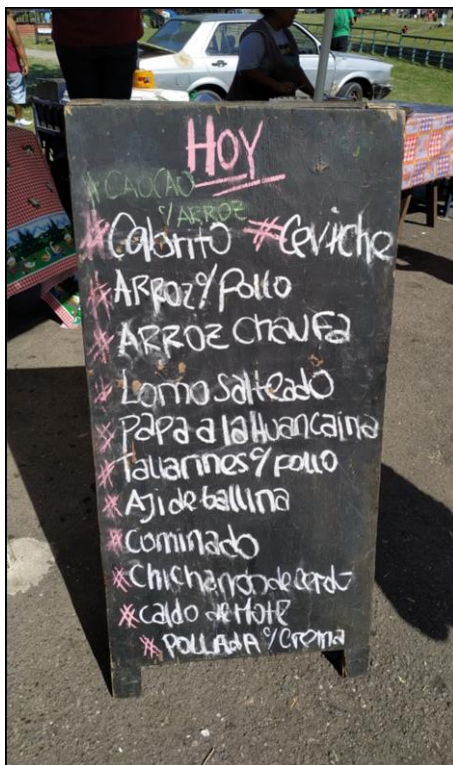 HOY
#CAUCAO
c/ARROZ
#Cabrito #Ceviche
#ARROZ c/ Pollo
#ARROZ chaufa
#Lomo Salteado
#PaPa a la Huancaina
#Tallarines c/ pollo
#Aji de Gallina
#Cominado
#Chicharron de Cerdo
#caldo de Mote
#POLLADA c/ Crema